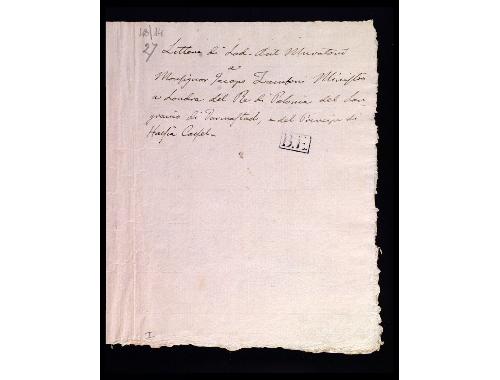 18/14
27 Lettere di Lod. Ant. Muratori
a
Monsignor Jacopo Zamboni Ministro
a Londra del Re di Polonia del Lan
gravio di Darmstad, e del Principe di
Hassia Cassel.
B.E.
I